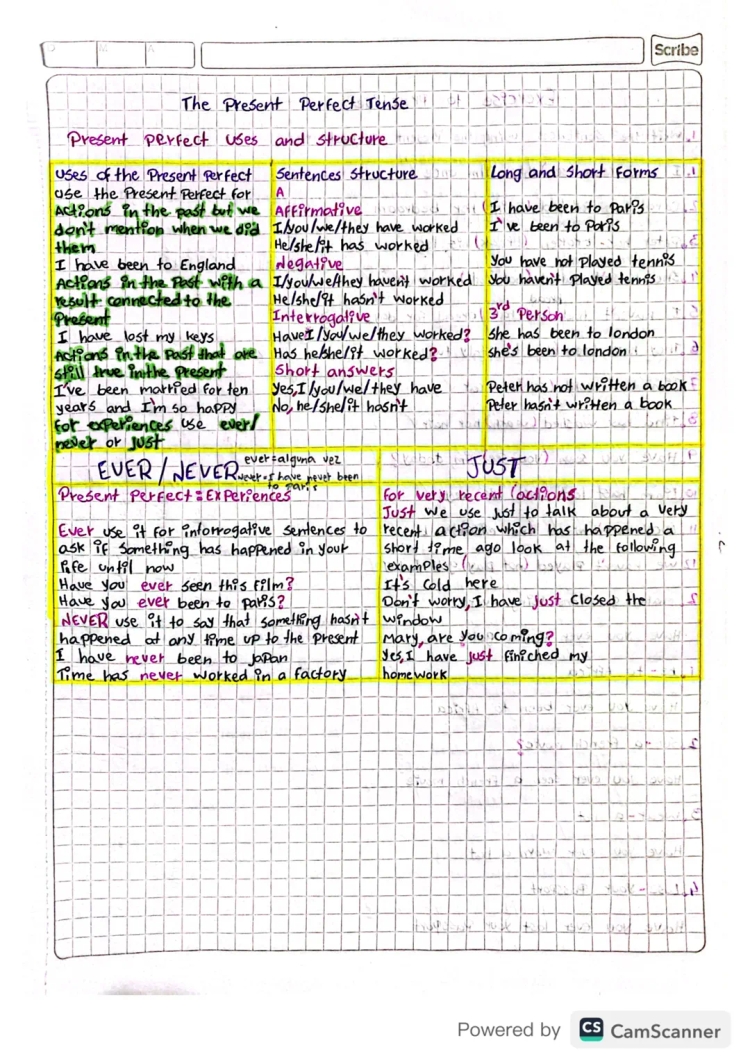 Scribe
The Present Perfect Tense
Present perfect uses and structure
uses of the Present Perfect
use the Present Perfect for
Actions in the past but we
don't mention when we did
them
I have been to England
Actions in the Past with a
result connected to the
Present
I have lost my keys
Actions in the Past that are
still true in the Present
I've been married for ten
years and I'm so happy
for experiences use ever/
never or just
Sentences structure
A
Affirmative
I/you/we/they have worked
He/she/it has worked
Negative
I/you/we/they haven't worked
He/she/it hasn't worked
Interrogative
Have I/you/we/they worked?
Has he/she/it worked?
Short answers
Yes, I/you/we/they have
No, he/she/it hasn't
Long and short forms
I have been to Paris
I've been to Paris
You have not played tennis
You haven't Played tennis
3rd Person
She has been to london
she's been to london
Peter has not written a book
Peter hasn't written a book
EVER / NEVER
ever=alguna vez
never=I have never been
to Paris
Present Perfect = Experiences
Ever use it for inforrogative sentences to
ask if something has happened in your
life until now
Have you ever seen this film?
Have you ever been to Paris?
NEVER use it to say that something hasn't
happened at any time up to the Present
I have never been to Japan
Time has never worked in a factory
JUST
for very recent actions
Just we use just to talk about a very
recent action which has happened a
short time ago look at the following
examples
It's cold here
Don't worry, I have just closed the
window
Mary, are you coming?
Yes, I have just finiched my
homework
Powered by CS CamScanner